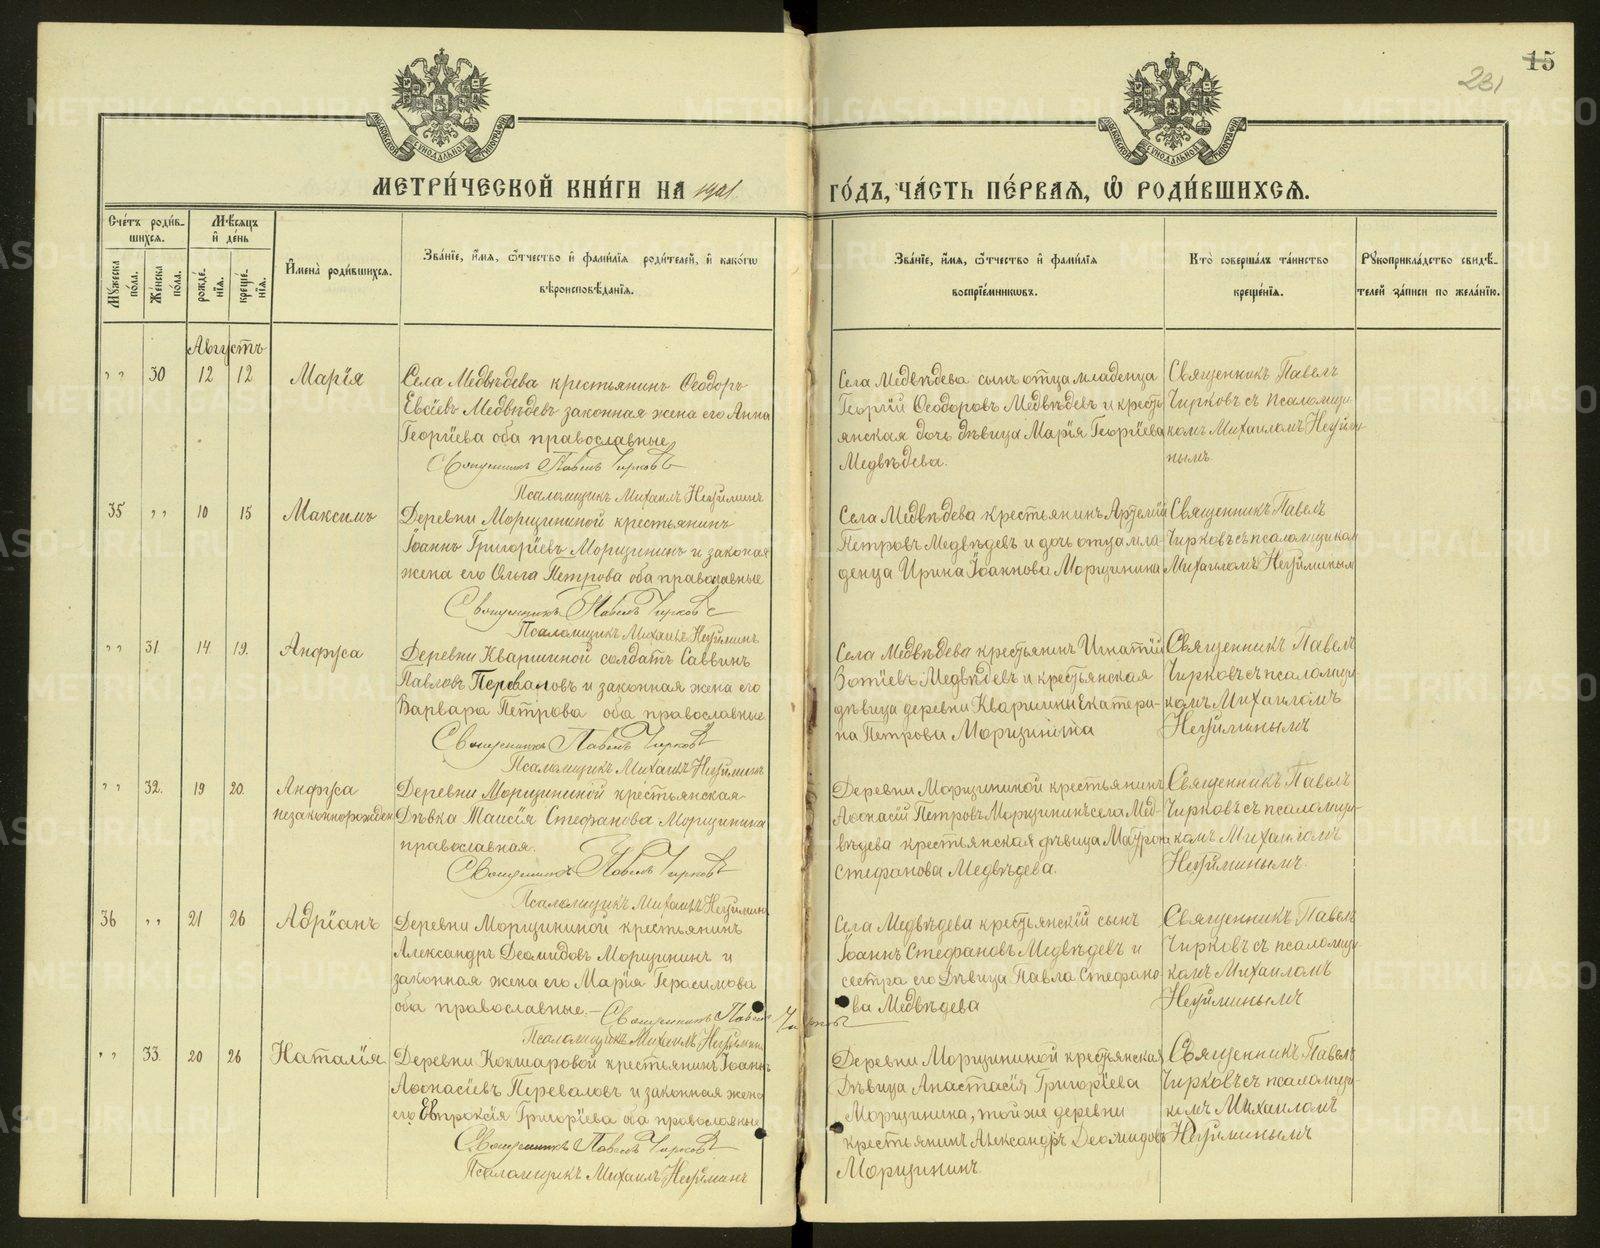 15
231
МЕТРИ́ЧЕСКОЙ КНИ́ГИ НА 1921
ГО́ДЪ, ЧА́СТЬ ПЕ́РВАЯ, Ѡ҆ РОДИ́ВШИХСЯ.
Сче́тъ роди́в-
шихся.
Му́жеска по́ла.
Же́нска по́ла.
Мѣ́сяцъ и҆ де́нь
рожде́-нїя.
креще́-нїя.
И҆мена̀ роди́вшихся.
Зва́нїе, и҆́мя, ѻ҆́тчество и҆ фами́лїя роди́телей, и҆ како́гѡ
вѣроисповѣ́данїя.
Зва́нїе, и҆́мя, ѻ҆́тчество и҆ фами́лїя
воспрїе́мниковъ.
Кто̀ соверша́лъ та́инство
креще́нїя.
Рꙋкоприкла́дство свидѣ́-
телей за́писи по жела́нїю.
Августъ
" " 30 12 12 Марія
Села Медвѣдева крестьянинъ Ѳеодоръ
Евсіевъ Медвѣдевъ законная жена его Анна
Георгіева оба православные
Священникъ Павелъ Чирковъ
Псаломщикъ Михаилъ
Села Медвѣдева сынъ отца младенца
Георгій Ѳеодоровъ Медвѣдевъ и кресть
янская дочь дѣвица Марія Георгіева
Медвѣдева.
Священникъ Павелъ
Чирковъ съ псаломщи-
комъ Михаиломъ
нымъ
35 " " 10 15 Максимъ
Деревни Морщининой крестьянинъ
Іоаннъ Григоріевъ Морщининъ и законая
жена его Ольга Петрова оба православные
Священникъ Павелъ Чирковъ
Псаломщикъ Михаилъ
Села Медвѣдева крестьянинъ
Петровъ Медвѣдевъ и дочь отца мла-
денца Ирина Іоаннова Морщинина
Священникъ Павелъ
Чирковъ съ псаломщиком
Михаиломъ
" " 31 14 19. Анфуса
Деревни Квашниной солдатъ Саввинъ
Павловъ Переваловъ и законная жена его
Варвара Петрова оба православные
Священникъ Павелъ Чирковъ
Псаломщикъ Михаилъ
Села Медвѣдева крестьянинъ Игнатій
Зотіевъ Медвѣдевъ и крестьянская
дѣвица деревни Квашнины Екатери-
на Петрова Морщинина
Священникъ Павелъ
Чирковъ съ псаломщи-
комъ Михаиломъ
" " 32. 19 20. Анфуса
незаконнорожден
Деревни Морщининой крестьянская
Дѣвка Таисія Стефанова Морщинина
православная.
Священникъ Павелъ Чирковъ
Псаломщикъ Михаилъ
Деревни Морщининой крестьянинъ
Аѳонасій Петровъ Морщининъ села Мед-
вѣдева крестьянская дѣвица Матрона
Стефанова Медвѣдева.
Священникъ Павелъ
Чирковъ съ псаломщи-
комъ Михаиломъ
36 " " 21 26 Адріанъ
Деревни Морщининой крестьянинъ
Александръ Деомидовъ Морщининъ и
законная жена его Марія Герасимова
оба православные. — Священникъ Павелъ Чирковъ
Псаломщикъ Михаилъ
Села Медвѣдева крестьянскій сынъ
Іоаннъ Стефановъ Медвѣдевъ и
сестра его Дѣвица Павла Стефано-
ва Медвѣдева
Священникъ Павелъ
Чирковъ съ псаломщи-
комъ Михаиломъ
" " 33. 20 26 Наталія
Деревни Кокшаровой крестьянинъ Іоаннъ
Аѳонасіевъ Переваловъ и законная жена
его Евпроксія Григоріева оба православные
Священникъ Павелъ Чирковъ
Псаломщикъ Михаилъ
Деревни Морщининой крестьянская
Дѣвица Анастасія Григоріева
Морщинина, той же деревни
крестьянинъ Александръ Деомидовъ
Морщининъ.
Священникъ Павелъ
Чирковъ съ псаломщи-
комъ Михаиломъ